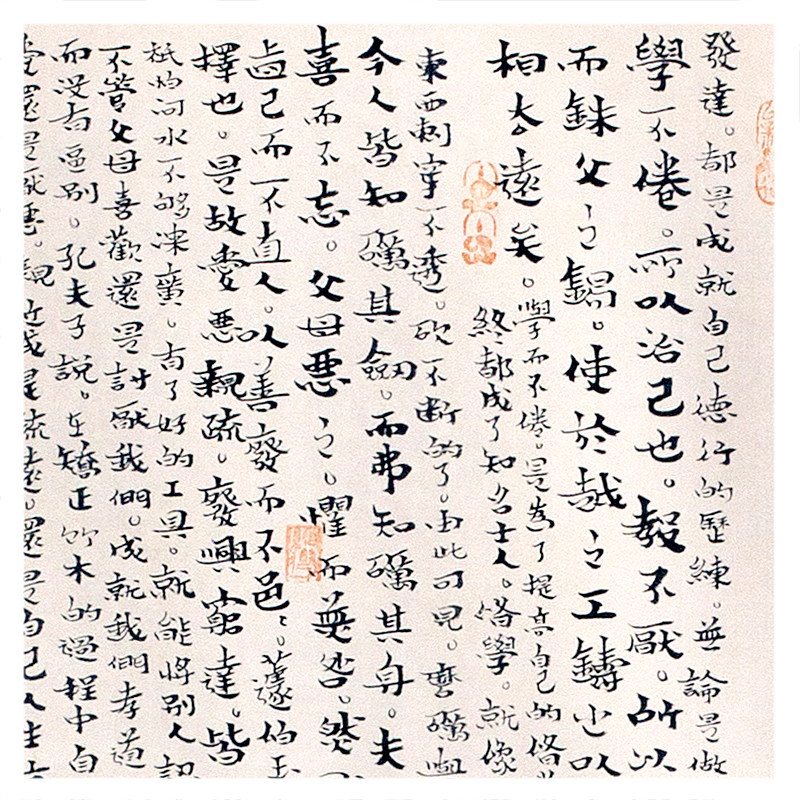 發達。都是成就自己德行的歷練。無論是做
學不倦。所以治己也。教不厭。所以
而銖父之錫。使於越之工鑄之以
相去遠矣。學而不倦。是為了提高自己的修
終都成了知名士人。修學。就像
東西刺穿不透。砍不斷的了。由此可見。磨礪
今人皆知礪其劍。而弗知礪其身。夫
喜而不忘。父母惡之。懼而無咎。然
直己而不直人。以善發而不邑邑。蘧伯玉
擇也。是故愛惡親疏。廢興窮達。皆
河水不够。有了好的工具。就能將別人認
不管父母喜歡還是討厭我們。成就我們孝道
而沒有區別。孔夫子說。在矯正竹木的過程中自
愛還是厭惡。親近或是疏遠。還是自己人生